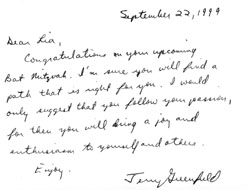 September 22, 1999
Dear Lia,
Congratulations on your upcoming
Bat Mitzvah. I'm sure you will find a
path that is right for you. I would
only suggest that you follow your passion,
for then you will bring a joy and
enthusiasm to yourself and others.
Enjoy.
Jerry Greenfield